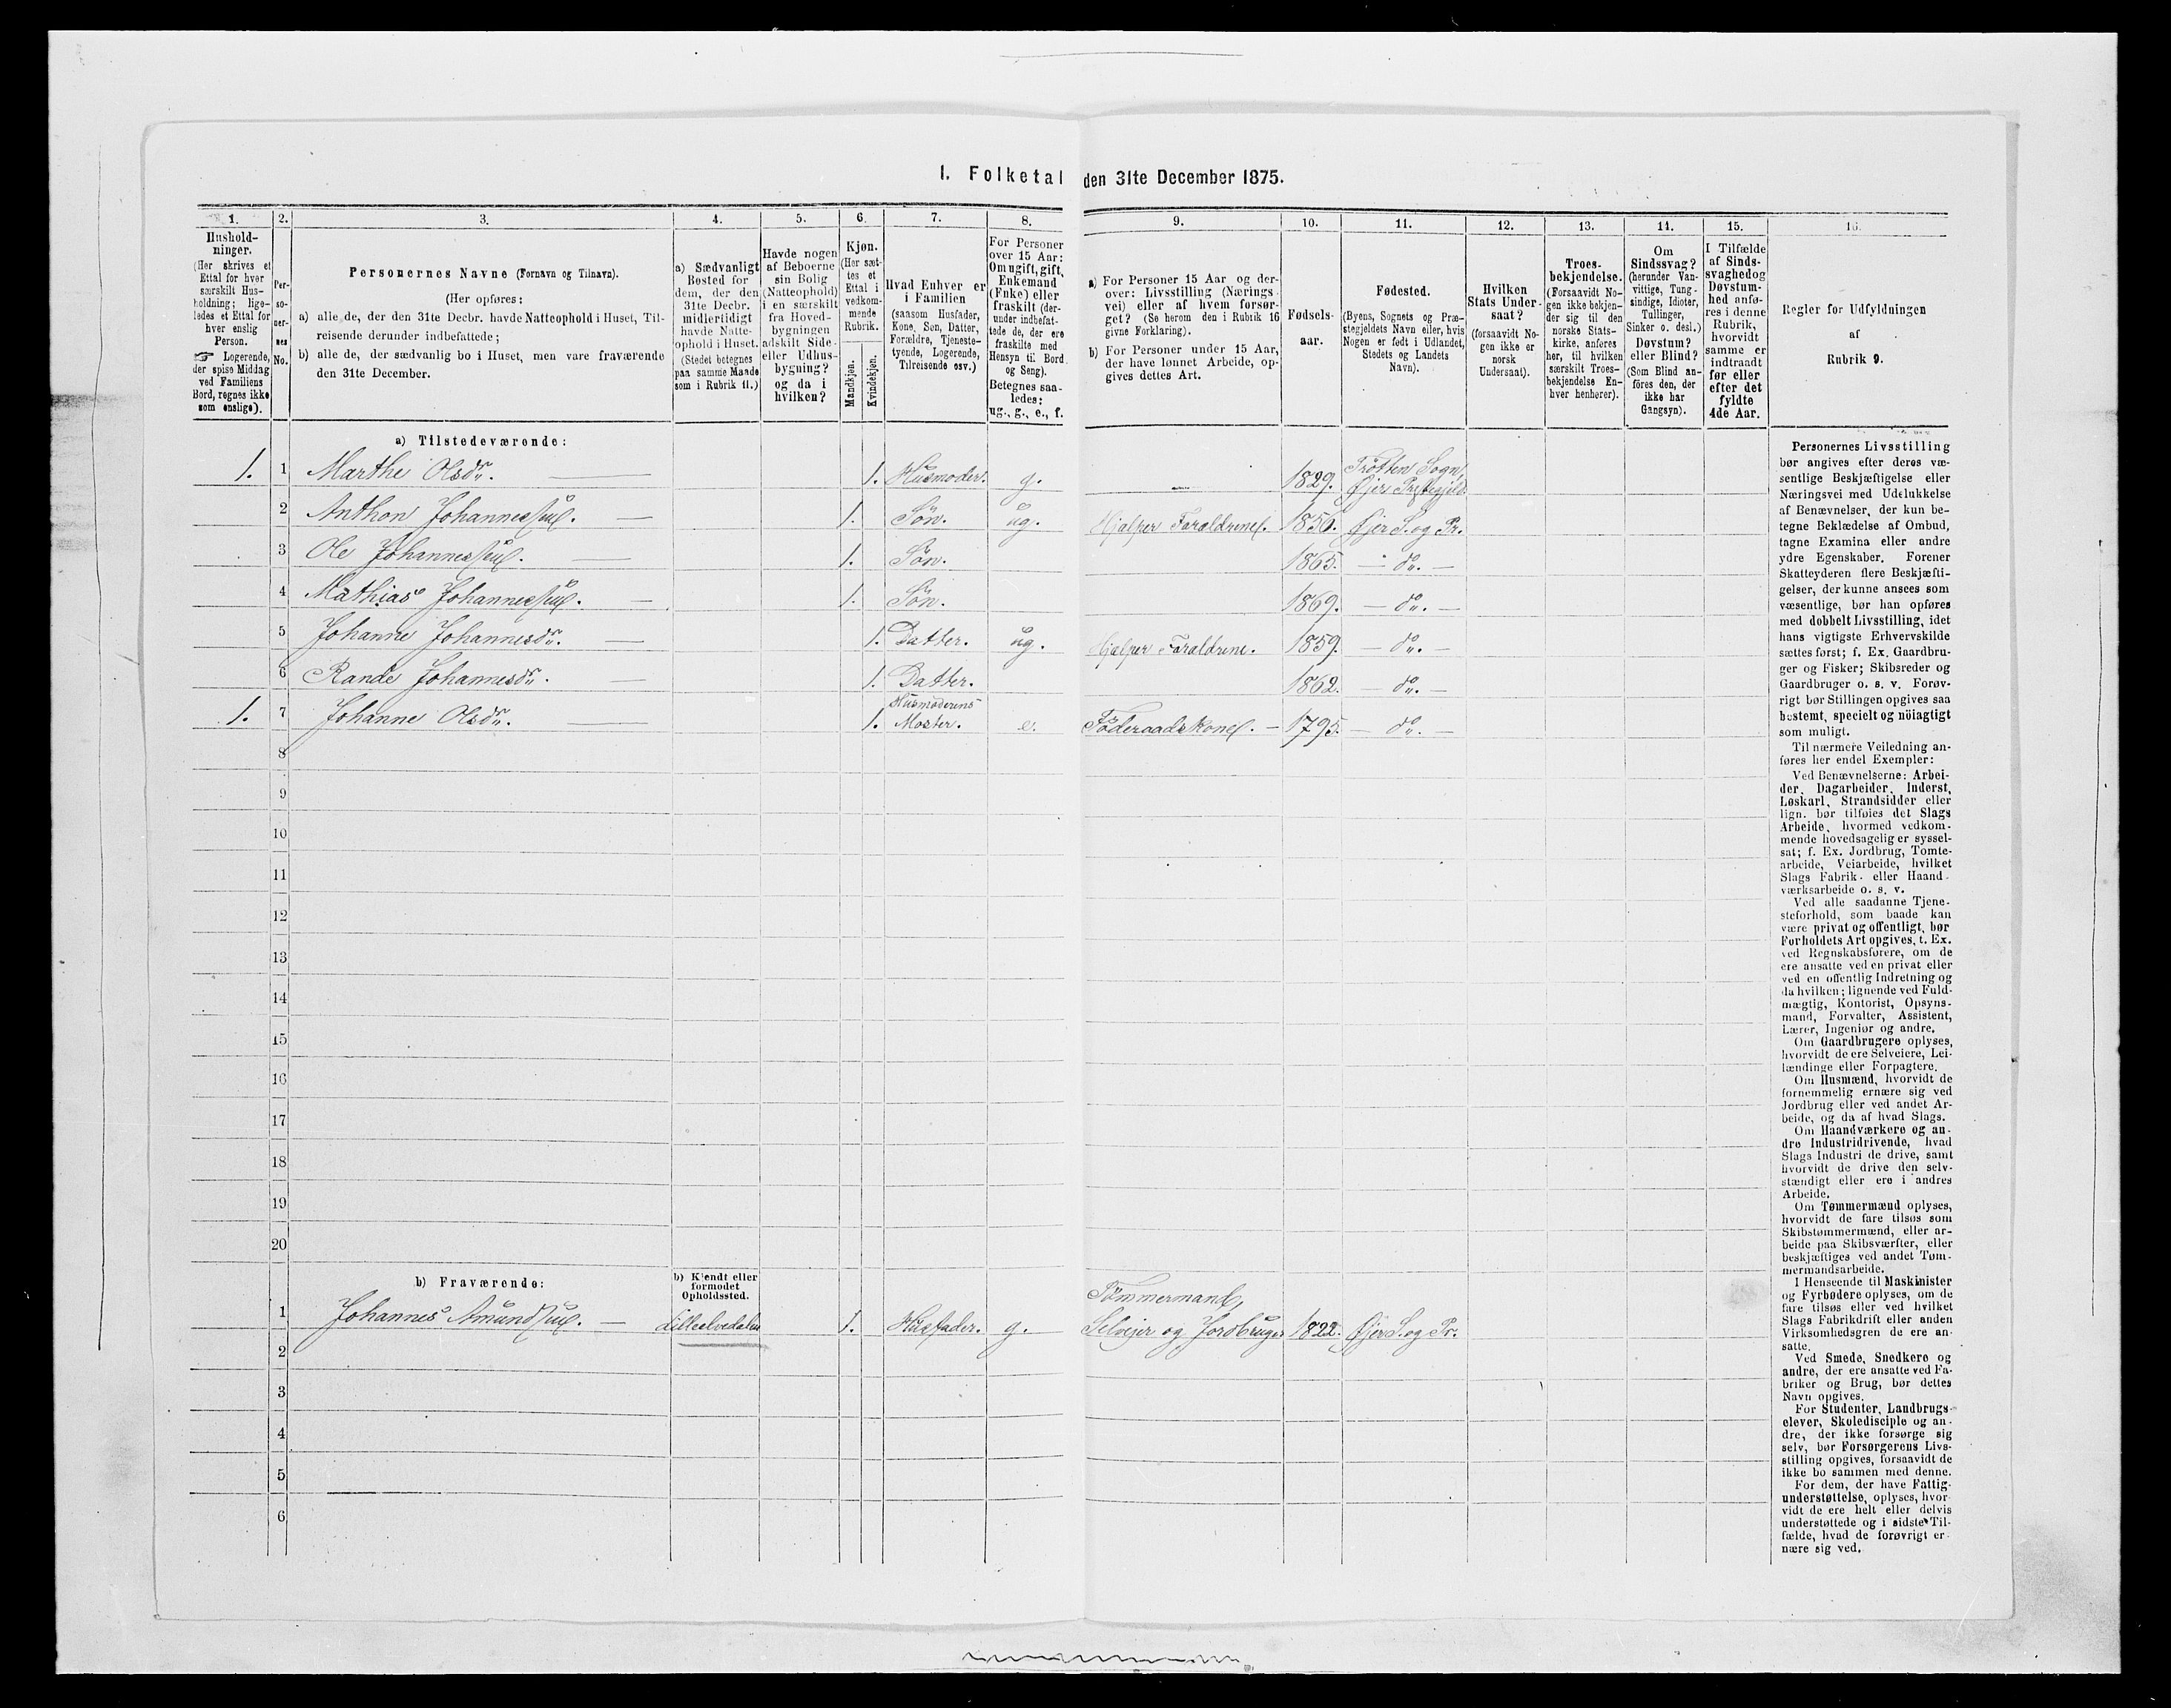 I. Folketal den 31te December 1875.
1. 2. 3. 4. 5. 6. 7. 8. 9. 10. 11. 12. 13. 14. 15. 16.
Hushold-
ninger.
(Her skrives et
Ettal for hver
særskilt Hus-
holdning; lige-
ledes et Ettal for
hver enslig
Person.
☞ Logerende,
der spise Middag
ved Familiens
Bord, regnes ikke
som enslige).
Per-
so-
ner-
nes
No.
Personernes Navne (Fornavn og Tilnavn).
(Her opføres:
a) alle de, der den 31te Decbr. havde Natteophold i Huset, Til-
reisende derunder indbefattede;
b) alle de, der sædvanlig bo i Huset, men vare fraværende
den 31te December.
a) Sædvanligt
Bosted for
dem, der den
31te Decbr.
midlertidigt
havde Natte-
ophold i Huset.
(Stedet betegnes
paa samme Maade
som i Rubrik 11.)
Havde nogen
af Beboerne
sin Bolig
(Natteophold)
i en særskilt
fra Hoved-
bygningen
adskilt Side-
eller Udhus-
bygning?
og da i
hvilken?
Kjøn.
(Her sæt-
tes et
Ettal i
vedkom-
mende
Rubrik.
Mandkjøn.
Kvindekjøn.
Hvad Enhver er
i Familien
(saasom Husfader,
Kone, Søn, Datter,
Forældre, Tjeneste-
tyende, Logerende,
Tilreisende osv.)
For Personer
over 15 Aar:
Om ugift, gift,
Enkemand
(Enke) eller
fraskilt (der-
under indbefat-
tede de, der ere
fraskilte med
Hensyn til Bord
og Seng).
Betegnes saa-
ledes:
ug., g., e., f.
a) For Personer 15 Aar og der-
over: Livsstilling (Nærings-
vei) eller af hvem forsør-
get? (Se herom den i Rubrik 16
givne Forklaring).
b) For Personer under 15 Aar,
der have lønnet Arbeide, op-
gives dettes Art.
Fødsels-
aar.
Fødested.
(Byens, Sognets og Præ-
stegjeldets Navn eller, hvis
Nogen er født i Udlandet,
Stedets og Landets
Navn).
Hvilken
Stats Under-
saat?
(forsaavidt No-
gen ikke er
norsk
Undersaat).
Troes-
bekjendelse.
(Forsaavidt No-
gen ikke bekjen-
der sig til den
norske Stats-
kirke, anføres
her, til hvilken
særskilt Troes-
bekjendelse En-
hver henhører).
Om
Sindssvag?
(herunder Van-
vittige, Tung-
sindige, Idioter,
Tullinger,
Sinker o. desl.)
Døvstum?
eller Blind?
(Som Blind an-
føres den, der
ikke har
Gangsyn).
I Tilfælde
af Sinds-
svaghed og
Døvstum-
hed anfø-
res i denne
Rubrik,
hvorvidt
samme er
indtraadt
før eller
efter det
fyldte
4de Aar.
Regler for Udfyldningen
af
Rubrik 9.
a) Tilstedeværende:
1. 1 Marthe Olsdr. 1. Husmoder. g. 1829. Trötten Sogn, Øjer Prestegjeld
2 Anthon Johannessen. 1. Sön. ug. Hjalper Foraldrene. 1856. Øjer S. og Pr.
3 Ole Johannessen. 1. Sön. 1865. — do. —
4 Mathias Johannessen. 1. Sön. 1869. — do. —
5 Johanne Johannesdr. 1. Datter. ug. Hjalper Foraldrene. 1859. — do. —
6 Rande Johannesdr. 1. Datter. 1862. — do. —
1. 7 Johanne Olsdr. 1. Husmoderens Moster. e. Föderaadskone. — 1795. — do. —
8
9
10
11
12
13
14
15
16
17
18
19
20
b) Fraværende:
b) Kjendt eller
formodet
Opholdssted.
1 Johannes Amundsen. — Lilleelvedalen 1. Husfader. g. Tömmermand, Selvejer og Jordbruger 1822. Øjer S. og Pr.
2
3
4
5
6
Personernes Livsstilling
bør angives efter deres væ-
sentlige Beskjæftigelse eller
Næringsvei med Udelukkelse
af Benævnelser, der kun be-
tegne Beklædelse af Ombud,
tagne Examina eller andre
ydre Egenskaber. Forener
Skatteyderen flere Beskjæfti-
gelser, der kunne ansees som
væsentlige, bør han opføres
med dobbelt Livsstilling, idet
hans vigtigste Erhvervskilde
sættes først; f. Ex. Gaardbru-
ger og Fisker; Skibsreder og
Gaardbruger o. s. v. Forøv-
rigt bør Stillingen opgives saa
bestemt, specielt og nöiagtigt
som muligt.
Til nærmere Veiledning an-
føres her endel Exempler:
Ved Benævnelserne: Arbei-
der, Dagarbeider, Inderst,
Løskarl, Strandsidder eller
lign. bør tilføies det Slags
Arbeide, hvormed vedkom-
mende hovedsagelig er syssel-
sat; f. Ex. Jordbrug, Tomte-
arbeide, Veiarbeide, hvilket
Slags Fabrik- eller Haand-
værksarbeide o. s. v.
Ved alle saadanne Tjene-
steforhold, som baade kan
være privat og offentligt, bør
Forholdets Art opgives, t. Ex.
ved Regnskabsførere, om de
ere ansatte ved en privat eller
ved en offentlig Indretning og
da hvilken; lignende ved Fuld-
mægtig, Kontorist, Opsyns-
mand, Forvalter, Assistent,
Lærer, Ingeniør og andre.
Om Gaardbrugere oplyses,
hvorvidt de ere Selveiere, Lei-
lændinge eller Forpagtere.
Om Husmænd, hvorvidt de
fornemmelig ernære sig ved
Jordbrug eller ved andet Ar-
beide, og da af hvad Slags.
Om Haandværkere og an-
dre Industridrivende, hvad
Slags Industri de drive, samt
hvorvidt de drive den selv-
stændigt eller ere i andres
Arbeide.
Om Tømmermænd oplyses,
hvorvidt de fare tilsøs som
Skibstømmermænd, eller ar-
beide paa Skibsværfter, eller
beskjæftiges ved andet Tøm-
mermandsarbeide.
I Henseende til Maskinister
og Fyrbødere oplyses, om de
fare tilsøs eller ved hvilket
Slags Fabrikdrift eller anden
Virksomhedsgren de ere an-
satte.
Ved Smede, Snedkere og
andre, der ere ansatte ved Fa-
briker og Brug, bør dettes
Navn opgives.
For Studenter, Landbrugs-
elever, Skoledisciple og an-
dre, der ikke forsørge sig
selv, bør Forsørgerens Livs-
stilling opgives, forsaavidt de
ikke bo sammen med denne.
For dem, der have Fattig-
understøttelse, oplyses, hvor-
vidt de ere helt eller delvis
understøttede og i sidste Til-
fælde, hvad de forøvrigt er-
nære sig ved.